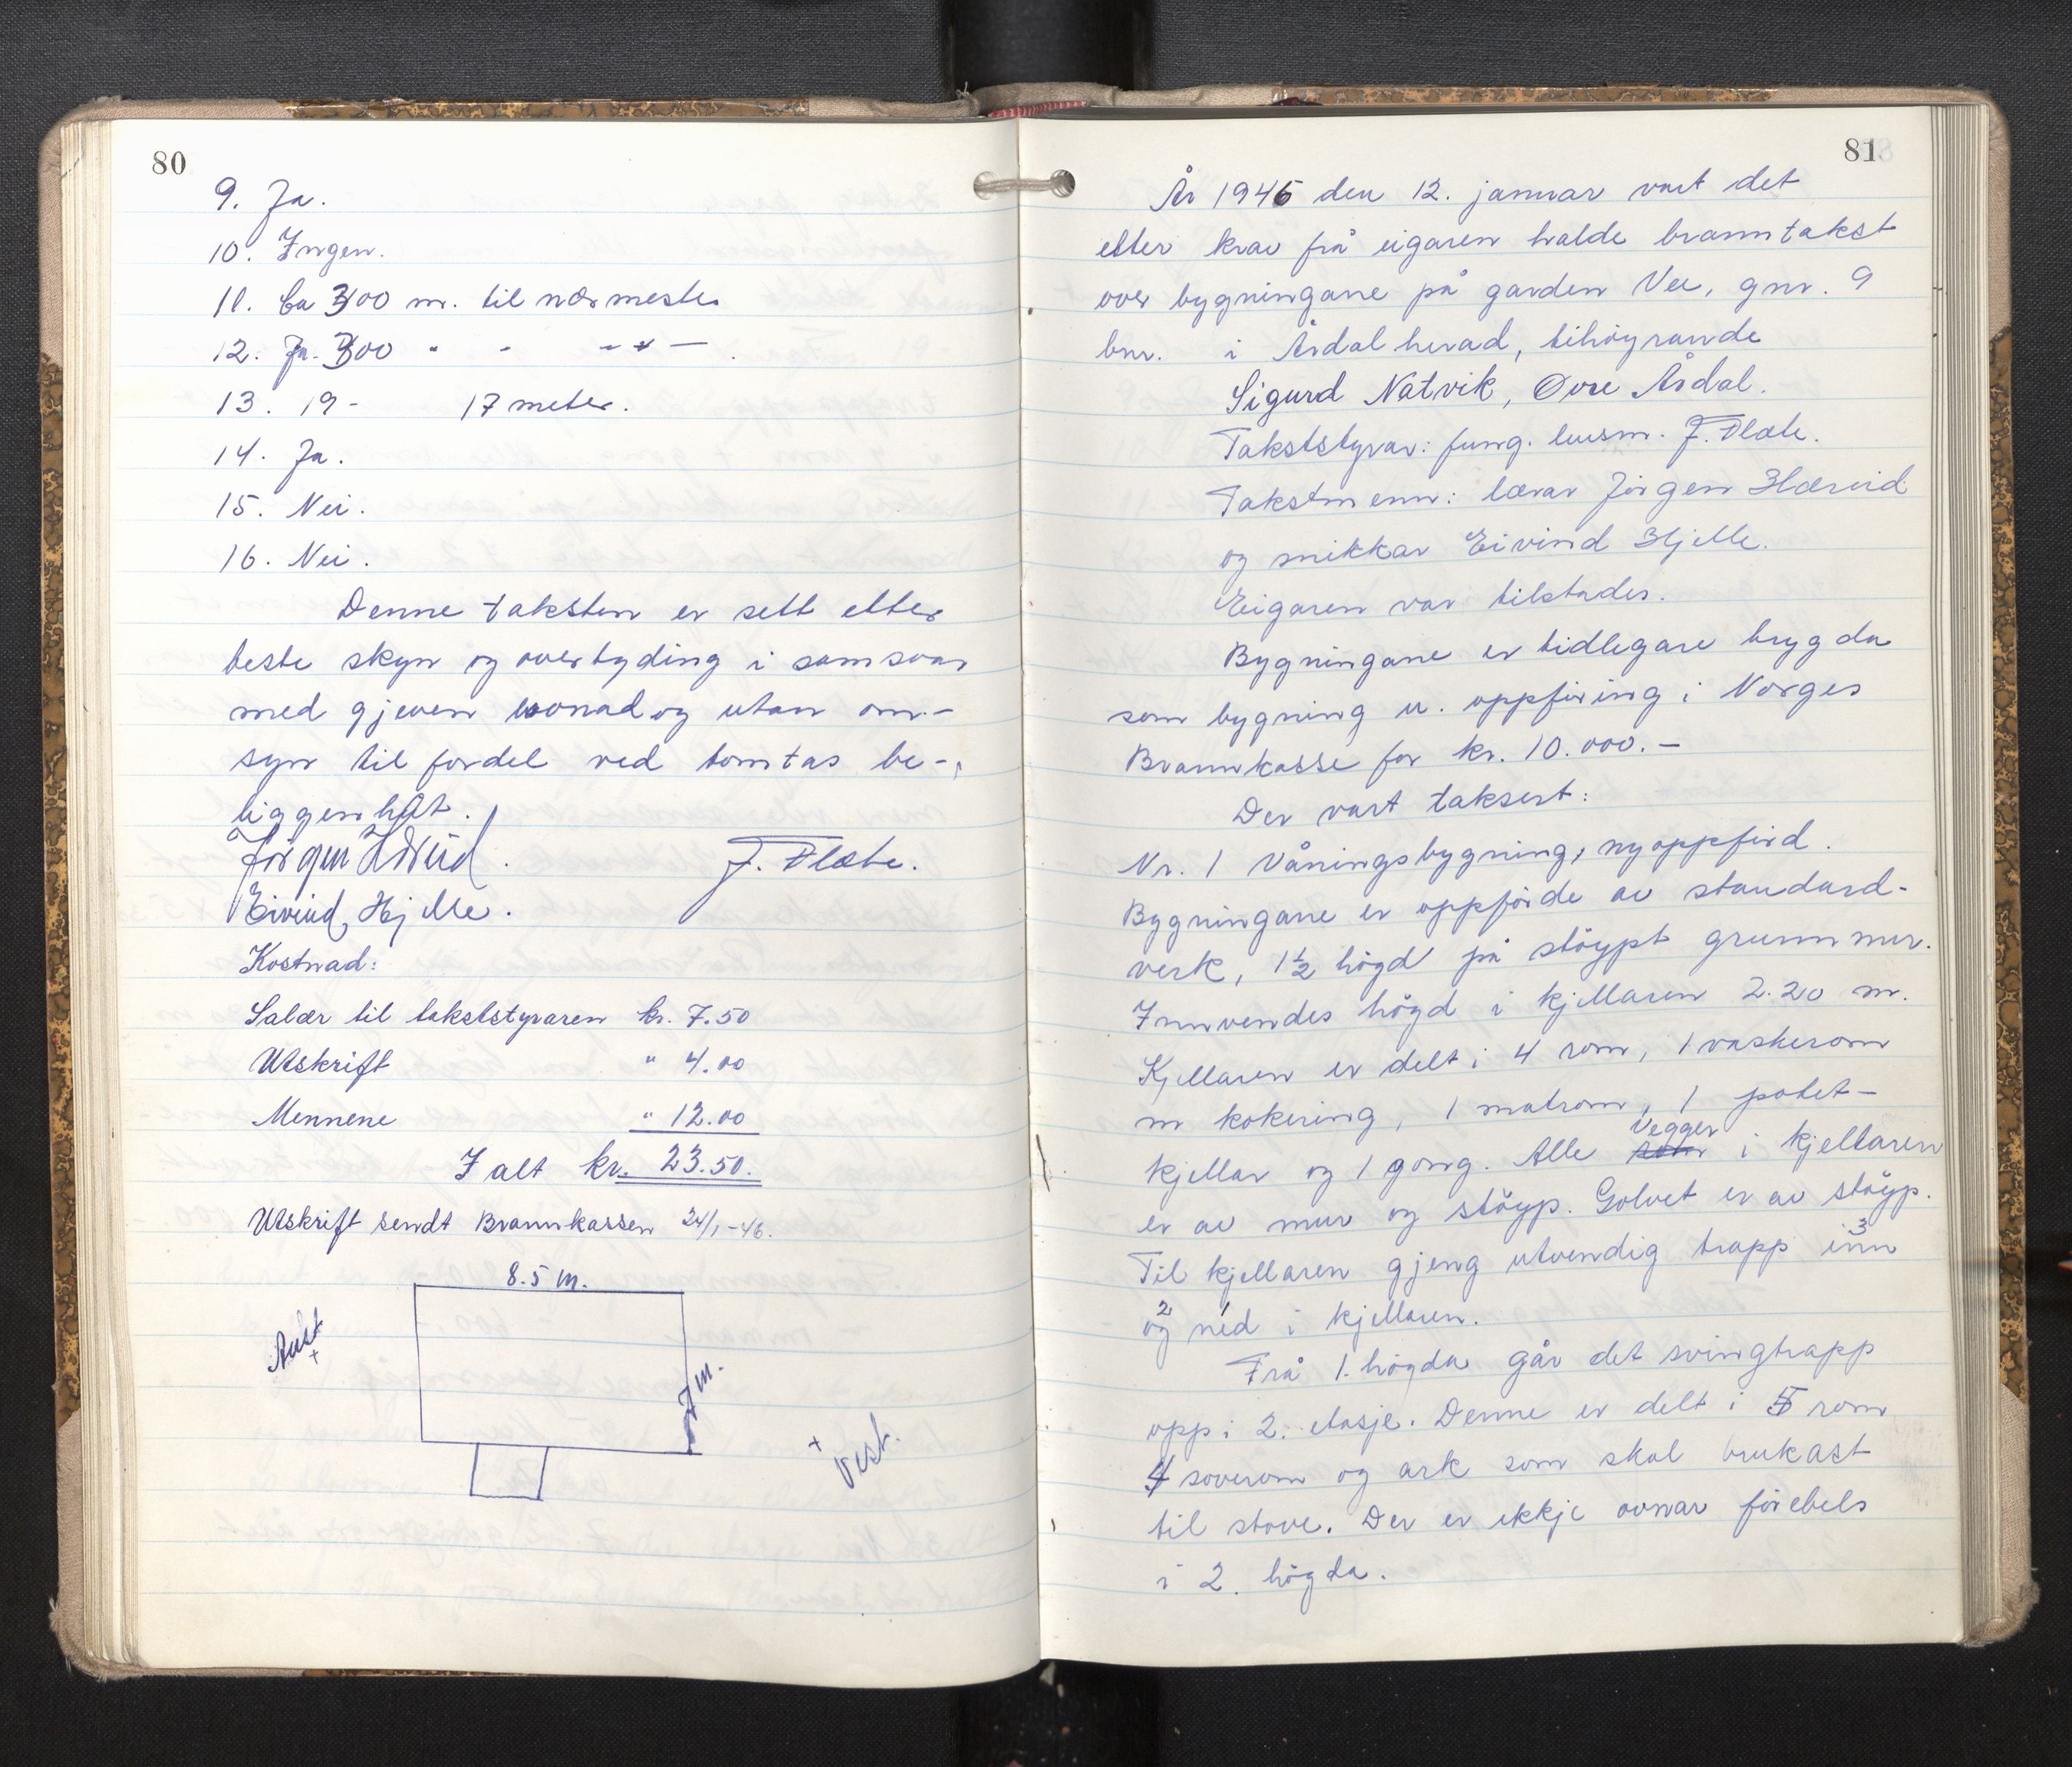 80
9. Ja.
10. Ingen.
11. Ca 300 m. til nærmeste
12. Ja. 300 " - - " - .
13. 19- 17 meter.
14. Ja.
15. Nei.
16. Nei.
Denne taksten er sett etter
beste skyn og overtyding i samsvar
med gjeven vonad og utan om-
syn til fordel ved tomtas be-
liggenhet.
J. Flæte.
Eivind Hjelle.
Kostnad:
Salær til takststyraren kr. 7.50
Utskrift " 4.00
Mennene " 12.00
I alt kr. 23.50.
Utskrift sendt Brannkassen 24/1-46.
8.5 m.
Aust
+
7 m.
+
Vest.
81
År 1946 den 12. januar vart det
etter krav frå eigaren halde branntakst
over bygningane på garden Vee, gnr. 9
bnr. i Årdal herad, tilhøyrande
Sigurd Natvik, Øvre Årdal.
Takststyrar: fung. lensm. J. Flæte.
Takstmenn: lærar Jörgen Hærvid
og snikkar Eivind Hjelle.
Eigaren var tilstades.
Bygningane er tidlegare trygda
som bygning u. oppföring i Norges
Brannkasse for kr. 10.000.-
Der vart taksert:
Nr. 1 Våningsbygning, nyoppförd.
Bygningane er oppförde av standard-
verk, 1½ högd på stöypt grunnmur.
Innvendes högd i kjellaren 2.20 m.
Kjellaren er delt i 4 rom, 1 vaskerom
m kokering, 1 matrom, 1 potet-
kjellar og 1 gong. Alle Vegger i kjellaren
er av mur og stöyp. Golvet er av stöyp.
Til kjellaren gjeng utvendig trapp inn 3
2 og néd i kjellaren.
Frå 1. högda går det svingtrapp
opp i 2. etasje. Denne er delt i 5 rom
4 soverom og ark som skal brukast
til stove. Der er ikkje ovnar förebels
i 2. högda.